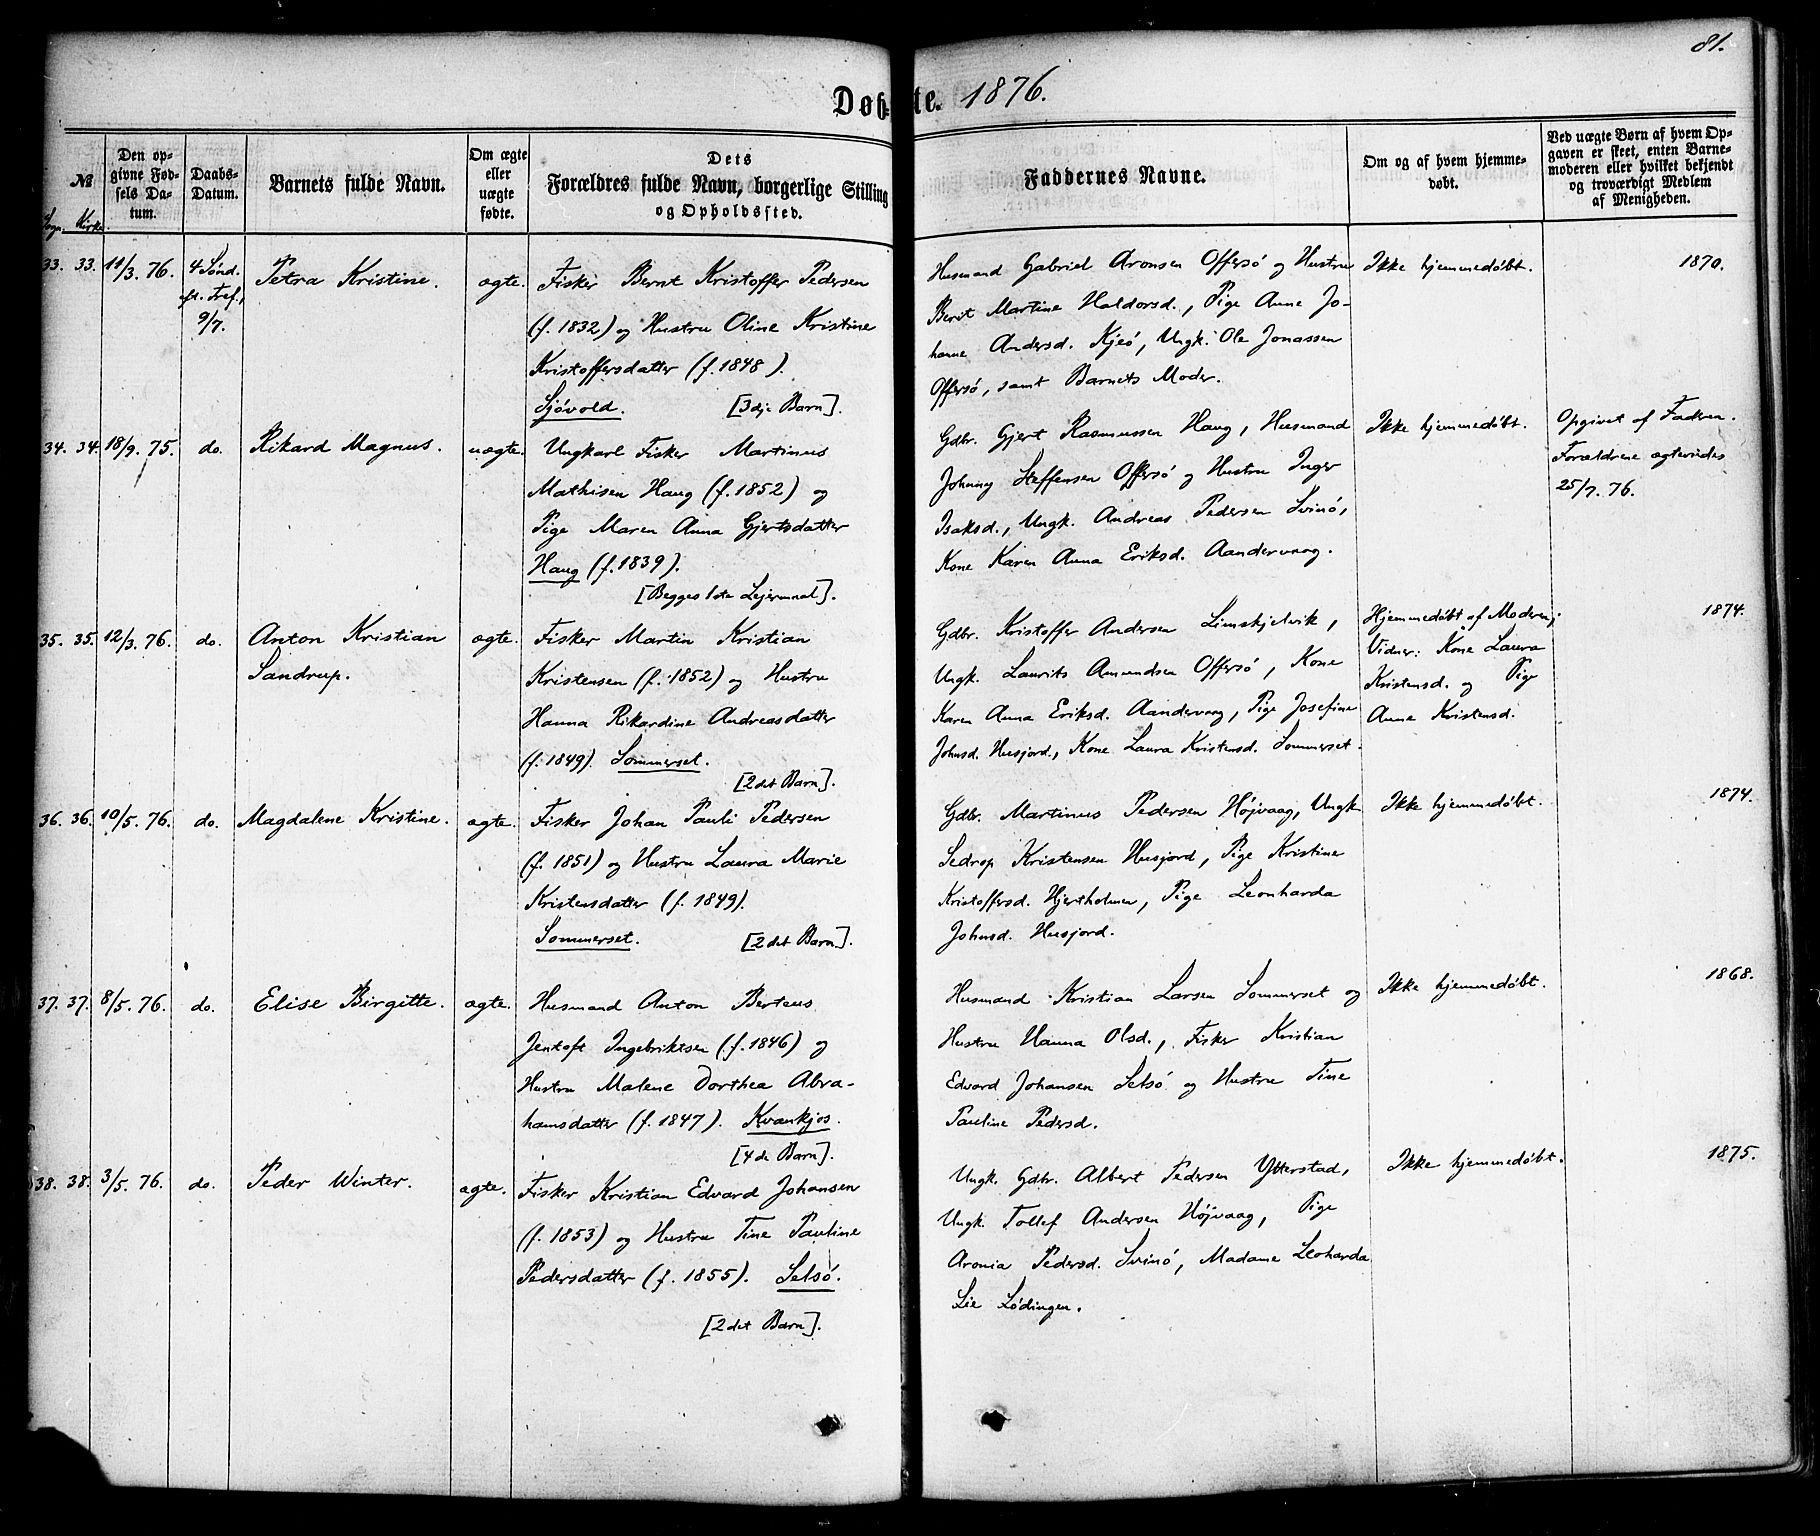 81.
Døbte. 1876.
№
Sogn. Kirke.
Den op-
givne Fød-
sels Da-
tum.
Daabs-
Datum.
Barnets fulde Navn.
Om ægte
eller
uægte
fødte.
Dets
Forældres fulde Navn, borgerlige Stilling
og Opholdssted.
Faddernes Navne.
Om og af hvem hjemme-
døbt.
Ved uægte Børn af hvem Op-
gaven er skeet, enten Barne-
moderen eller hvilket bekjendt
og troværdigt Medlem
af Menigheden.
33. 33. 11/3. 76.
4 Sønd.
eft. Tref.,
9/7.
Petra Kristine.
ægte.
Fisker Bernt Kristoffer Pedersen
(f. 1832) og Hustru Oline Kristine
Kristoffersdatter (f. 1848).
Sjøvold. [3dje Barn].
Husmand Gabriel Aronsen Offersø og Hustru
Berit Martine Haldorsd., Pige Anne Jo-
hanne Andersd. Kjeø, Ungk. Ole Jonassen
Offersø, samt Barnets Moder.
Ikke hjemmedøbt.
1870.
34. 34. 18/9. 75. do.
Rikard Magnus.
uægte.
Ungkarl Fisker Martinus
Mathisen Haug (f. 1852) og
Pige Maren Anna Gjertsdatter
Haug (f. 1839).
[Begges 1ste Lejermaal].
Gdbr. Gjert Rasmussen Haug, Husmand
Johnny Steffensen Offersø og Hustru Inger
Isaksd., Ungk. Andreas Pedersen Svinø,
Kone Karen Anna Eriksd. Aandervaag.
Ikke hjemmedøbt.
Opgivet af Fadren.
Forældrene ægteviedes
25/7. 76.
35. 35. 12/3. 76. do.
Anton Kristian
Sandrup.
ægte.
Fisker Martin Kristian
Kristensen (f. 1852) og Hustru
Hanna Rikardine Andreasdatter
(f. 1849). Sommerset.
[2det Barn].
Gdbr. Kristoffer Andersen Limskjelvik,
Ungk. Laurits Amundsen Offersø, Kone
Karen Anna Eriksd. Aandervaag, Pige Josefine
Johnsd. Husjord., Kone Laura Kristensd. Sommerset.
Hjemmedøbt af Moderen;
Vidner: Kone Laura
Kristensd. og Pige
Anne Kristensd.
1874.
36. 36. 10/5. 76. do.
Magdalene Kristine.
ægte.
Fisker Johan Pauli Pedersen
(f. 1851) og Hustru Laura Marie
Kristensdatter (f. 1849).
Sommerset. [2det Barn].
Gdbr. Martinus Pedersen Højvaag, Ungk
Sedrop Kristensen Husjord, Pige Kristine
Kristoffersd. Hjertholmen, Pige Leonharda
Johnsd. Husjord.
Ikke hjemmedøbt.
1874.
37. 37. 8/5. 76. do.
Elise Birgitte.
ægte.
Husmand Anton Berteus
Jentoft Ingebriktsen (f. 1846) og
Hustru Malene Dorthea Abra-
hamsdatter (f. 1847). Kvankjos.
[4de Barn].
Husmand Kristian Larsen Sommerset og
Hustru Hanna Olsd., Fisker Kristian
Edvard Johansen Selsø og Hustru Tine
Pauline Pedersd.
Ikke hjemmedøbt.
1868.
38. 38. 3/5. 76. do.
Peder Winter.
ægte.
Fisker Kristian Edvard Johansen
(f. 1853) og Hustru Tine Pauline
Pedersdatter (f. 1855). Selsø.
[2det Barn].
Ungk. Gdbr. Albert Pedersen Ytterstad,
Ungk. Tollef Andersen Højvaag, Pige
Aronia Pedersd. Svinø, Madame Leoharda
Lie Lødingen.
Ikke hjemmedøbt.
1875.